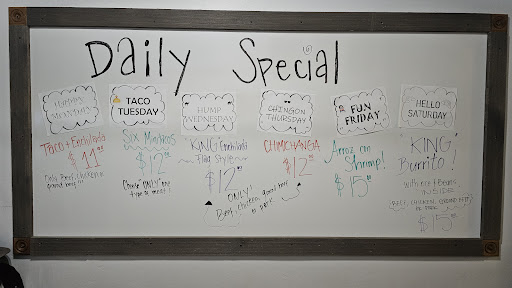 Daily Special
MONDAY
Taco + Enchilada
$11
Only Beef, Chicken &
ground beef!!!
TACO
TUESDAY
Six Minitacos
$12
Choose ONLY one
type of meat!
HUMP
WEDNESDAY
KING Enchilada
Flat Style
$12
ONLY!
Beef, chicken, ground beef
or pork
CHINGON
THURSDAY
CHIMICHANGA
$12
FUN
FRIDAY
Arroz con
Shrimp!
$15
HELLO
SATURDAY
KING
Burrito!
with rice + Beans
INSIDE
BEEF, CHICKEN, GROUND BEEF
OR PORK
$15